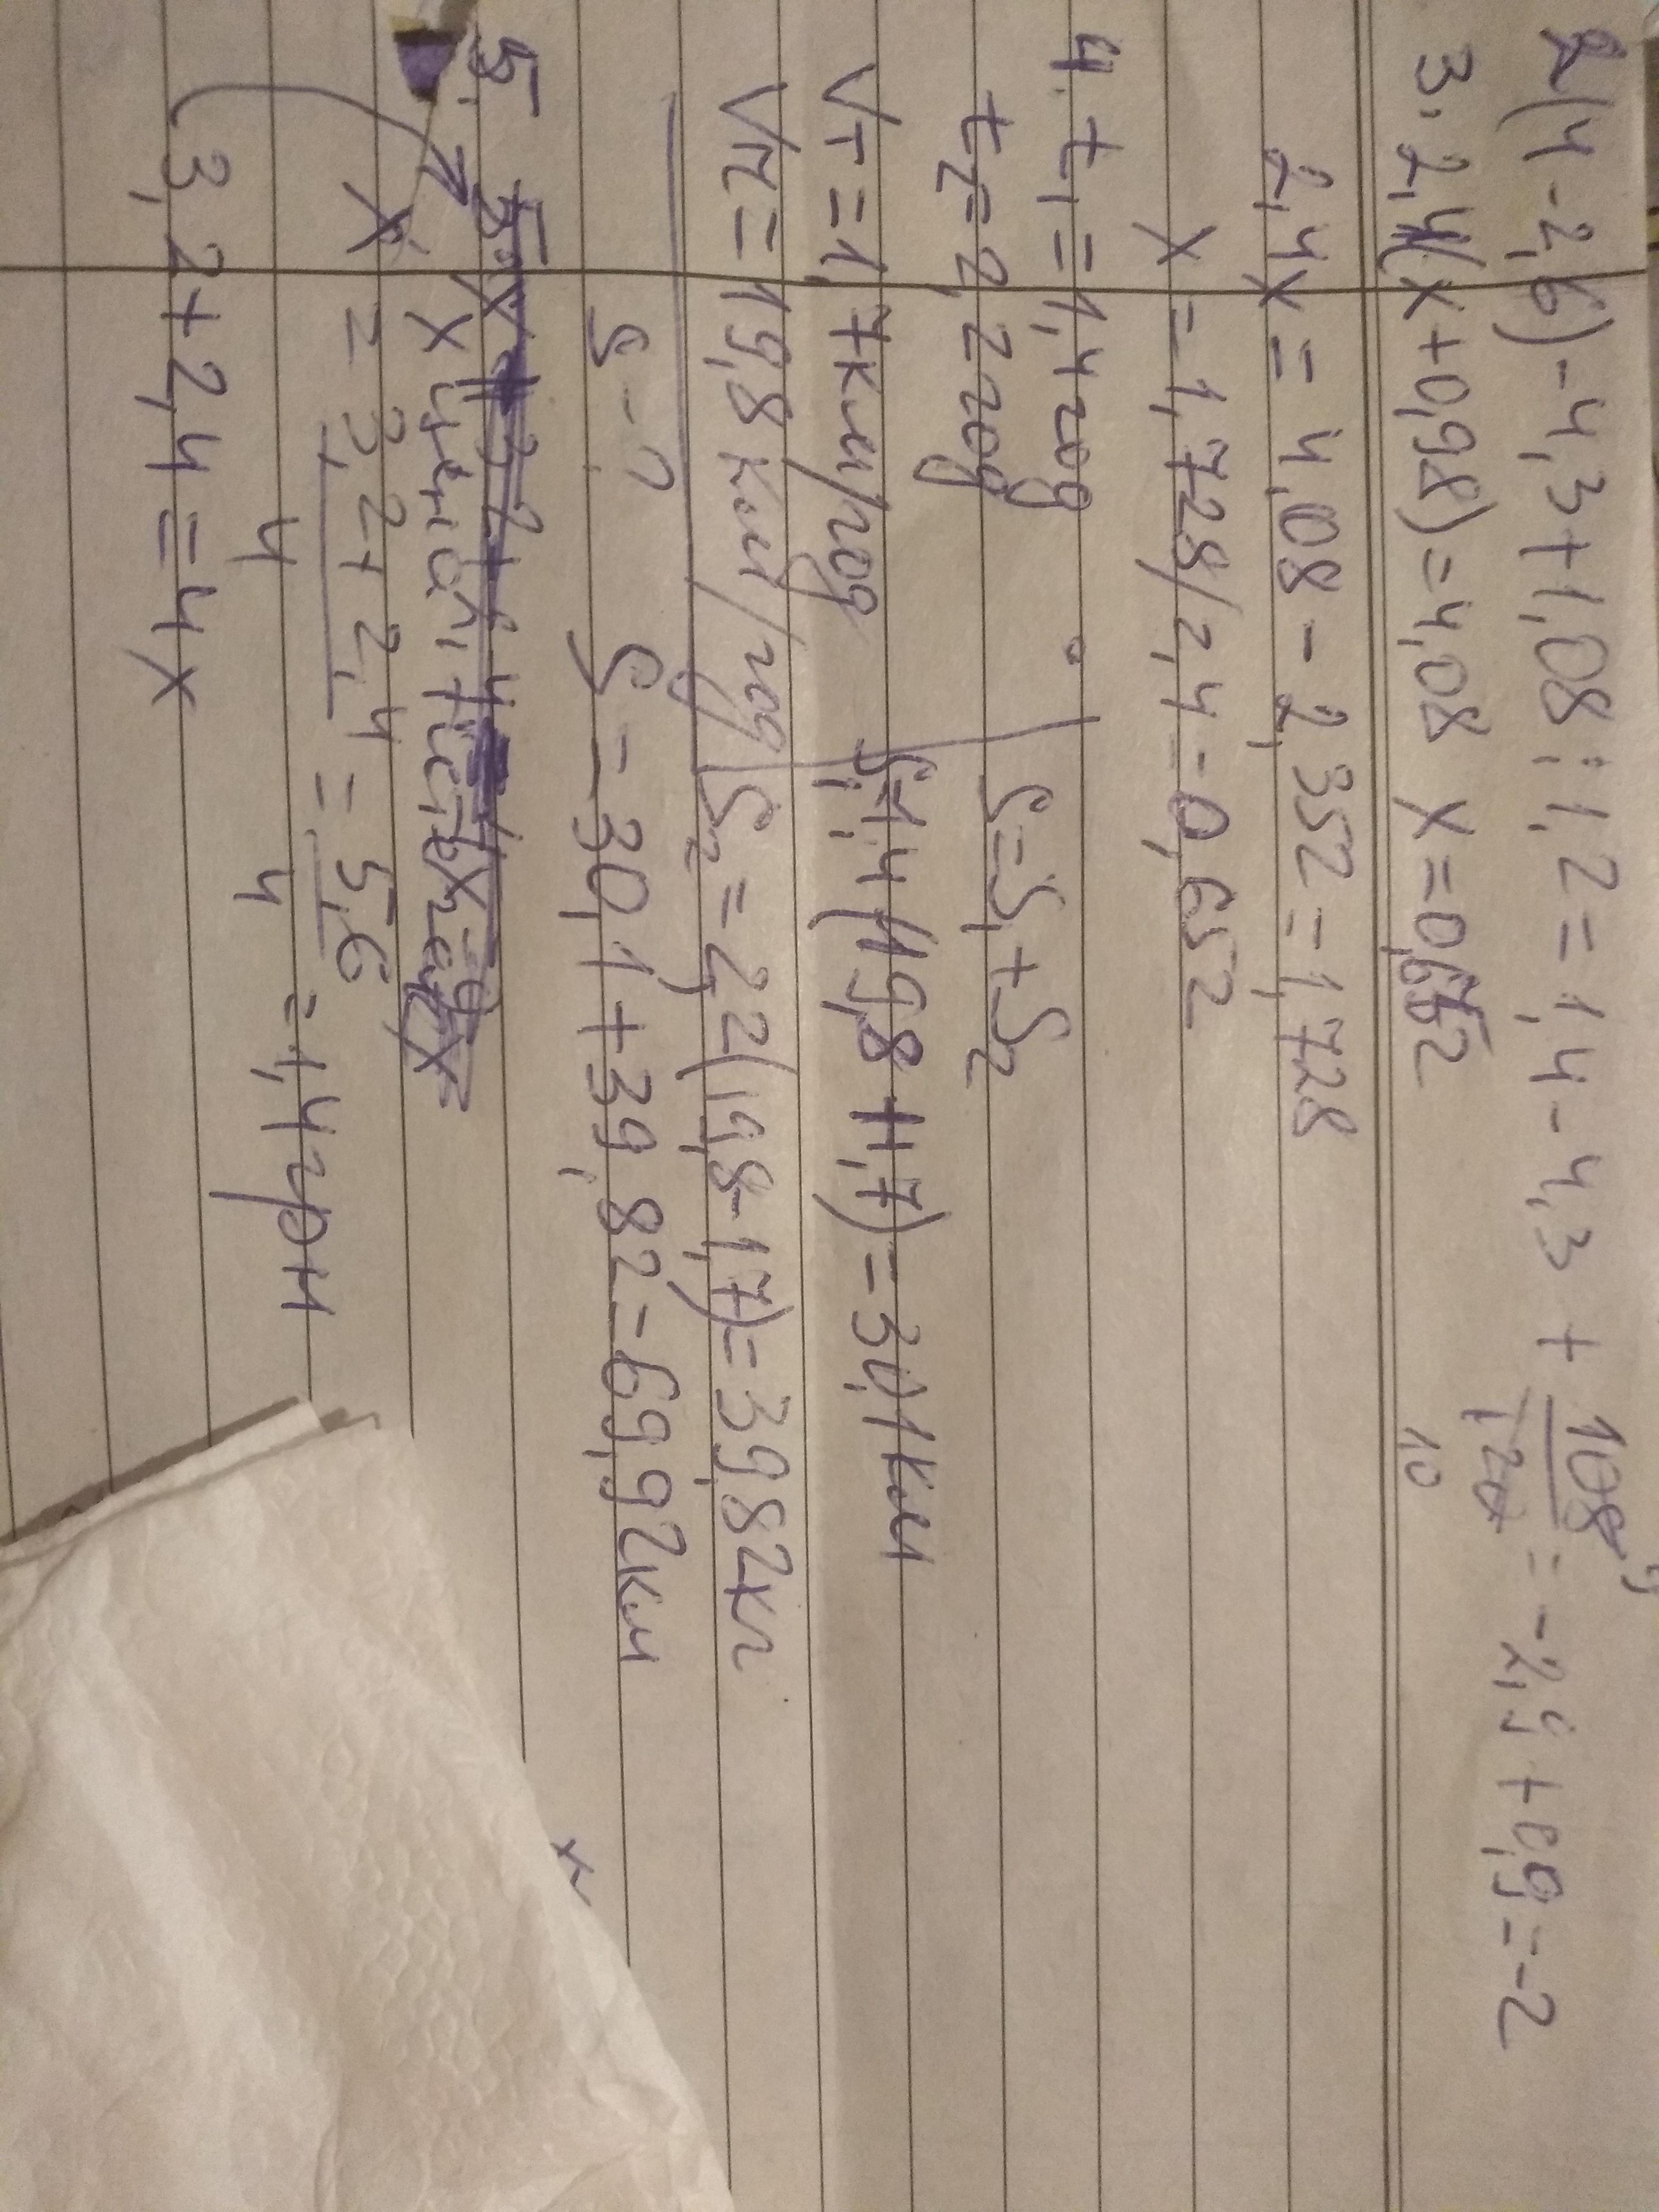 2(4-2,6)-4,3+1,08:1,2=1,4-4,3+108/120=-2,9+0,9=-2
10
3. 2,4(x+0,98)=4,08 x=0,652
2,4x=4,08-2,352=1,728
x=1,728/2,4=0,652
4. t₁=1,4год
t₂=2,2год S=S₁+S₂
Vт=1,7км/год S₁=1,4(19,8+1,7)=30,1км
Vп=19,8км/год S₂=2,2(19,8-1,7)=39,82кг
S-? S=30,1+39,82=69,92км
5.
x
x = 3,2+2,4/4 = 5,6/4 = 1,4грн
3,2+2,4=4x